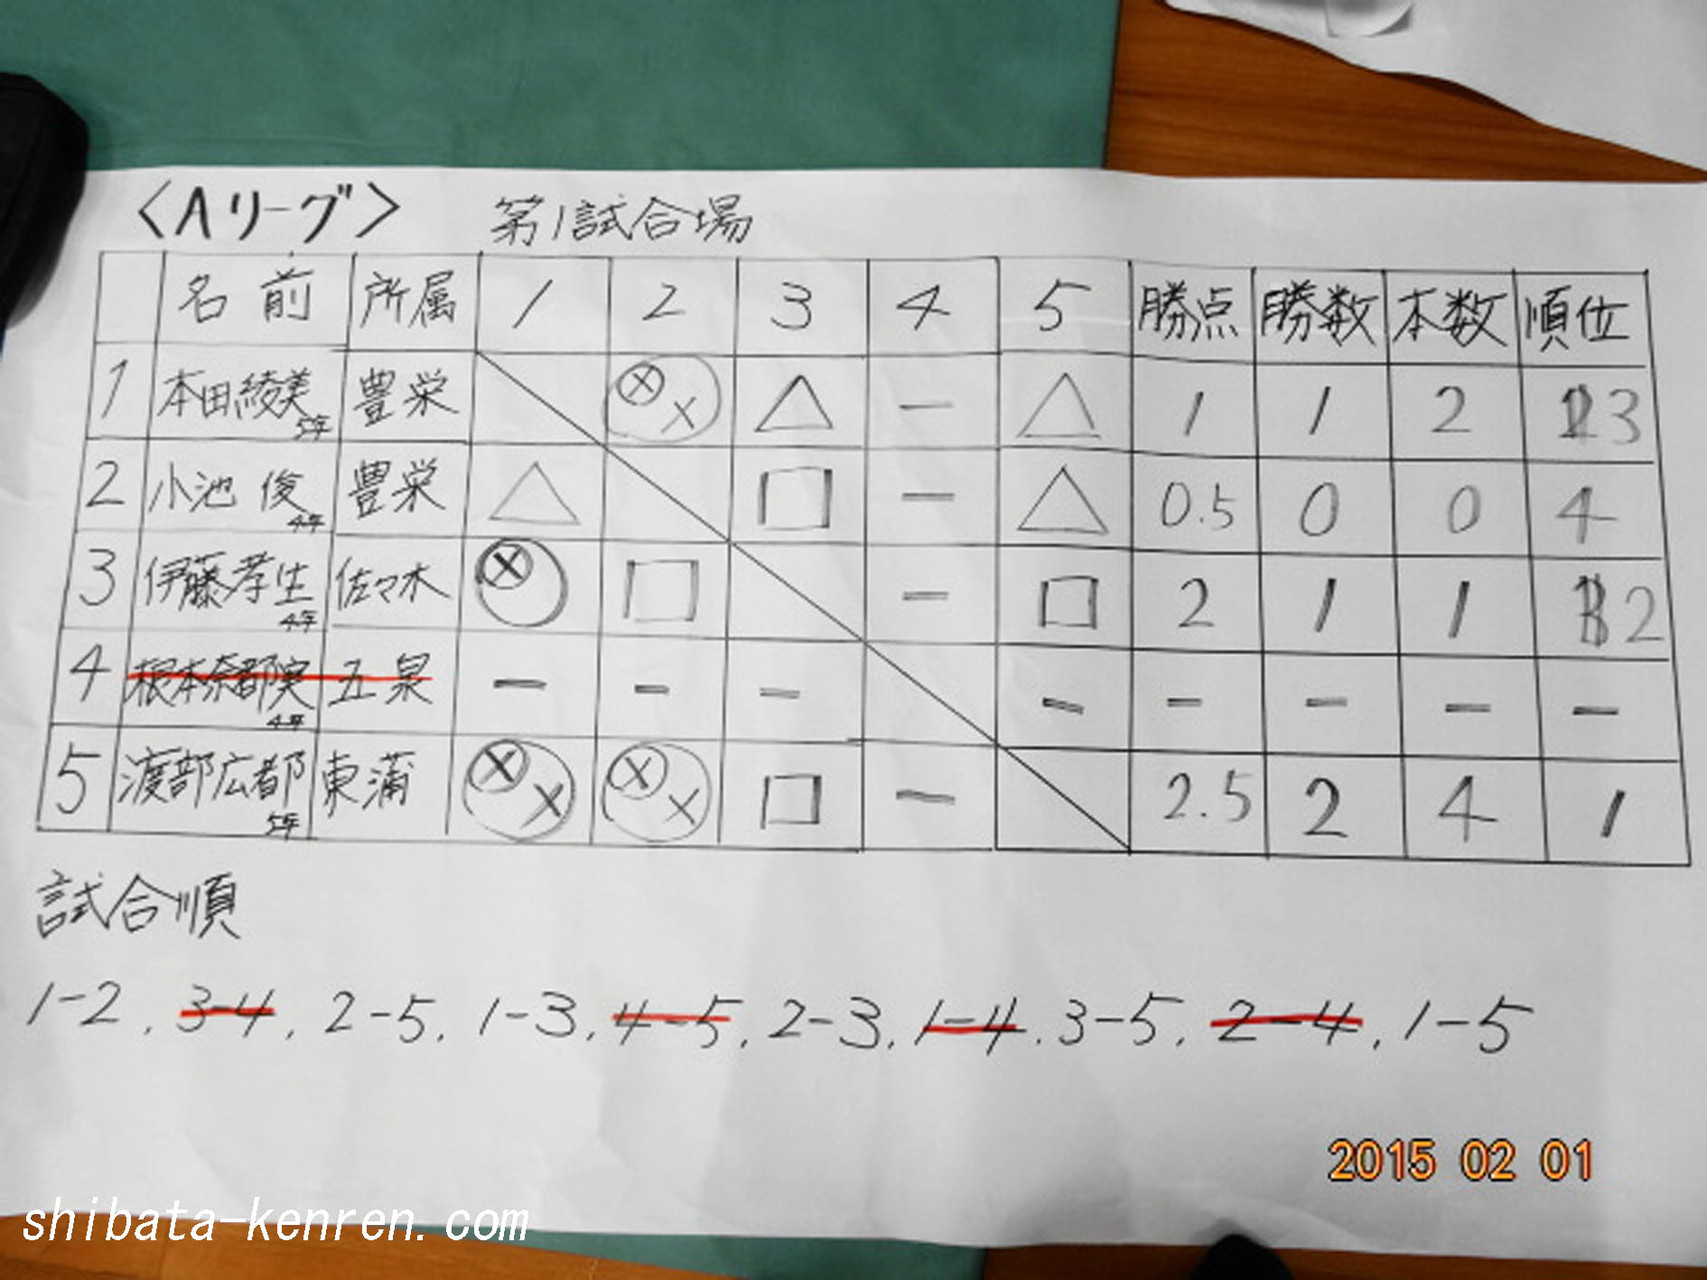 <Aリーグ> 第1試合場
名前 所属 1 2 3 4 5 勝点 勝数 本数 順位
1 本田綾美 5年 豊栄 ⓧ X △ — △ 1 1 2 3
2 小池俊 4年 豊栄 △ □ — △ 0.5 0 0 4
3 伊藤孝生 4年 佐々木 ⓧ □ — □ 2 1 1 2
4 根本奈都実 4年 五泉 — — — — — — — —
5 渡部広都 5年 東蒲 ⓧ X ⓧ X □ — 2.5 2 4 1
試合順
1-2, 3-4, 2-5, 1-3, 4-5, 2-3, 1-4, 3-5, 2-4, 1-5
2015 02 01
shibata-kenren.com